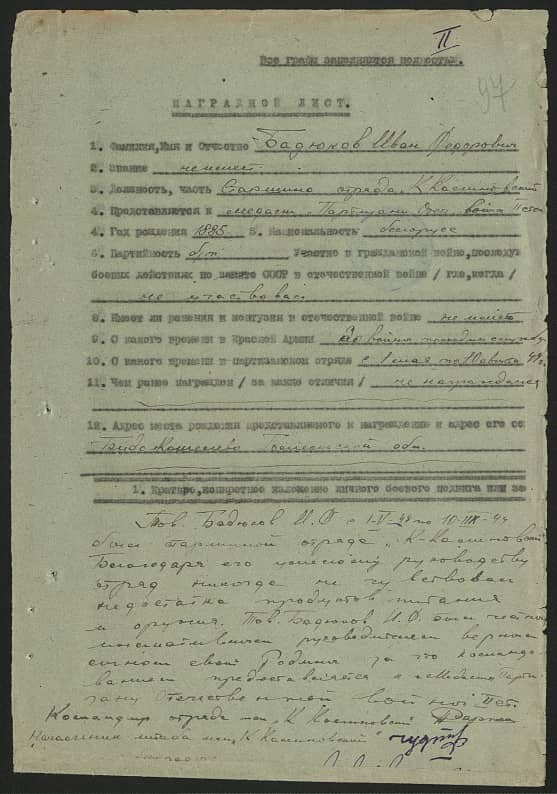 II
Все графы заполняются полностью.
97
НАГРАДНОЙ ЛИСТ.
1. Фамилия, Имя и Отчество Бадюков Иван Федорович
2. Звание не имеет
3. Должность, часть Старшина отряда "К. Касиновский
4. Представляется к медали Партизану Отеч. война II ст
4. Год рождения 1885 5. Национальность белорус
6. Партийность б/п Участие в гражданской войне, последую
боевых действиях по защите СССР в отечественной войне / где, когда /
не участвовал
8. Имеет ли ранения и контузии в отечественной войне не имеет
9. С какого времени в Красной Армии До войны
10. С какого времени в партизанском отряде с 1 мая по 10
11. Чем ранее награжден / за какие отличия / не награждался
12. Адрес места рождения представляемого к награждению и адрес его се
обл.
1. Краткое, конкретное изложение личного боевого подвига или за
Тов. Бадюков И.Ф с 1-V-44 по 10-VII-44
был старшиной отряда "К-Касиновский"
Благодаря его умелому руководству
отряд никогда не чувствовал
недостатка продуктов питания
и оружия. Тов. Бадюков И.Ф. был
инициативным руководителем верным
сыном своей Родины за что командо
ванием представляется к "Медали Парти
зану Отечественной войны II ст.
Командир отряда им. "К Касиновский"
Начальник штаба им. "К Касиновский"